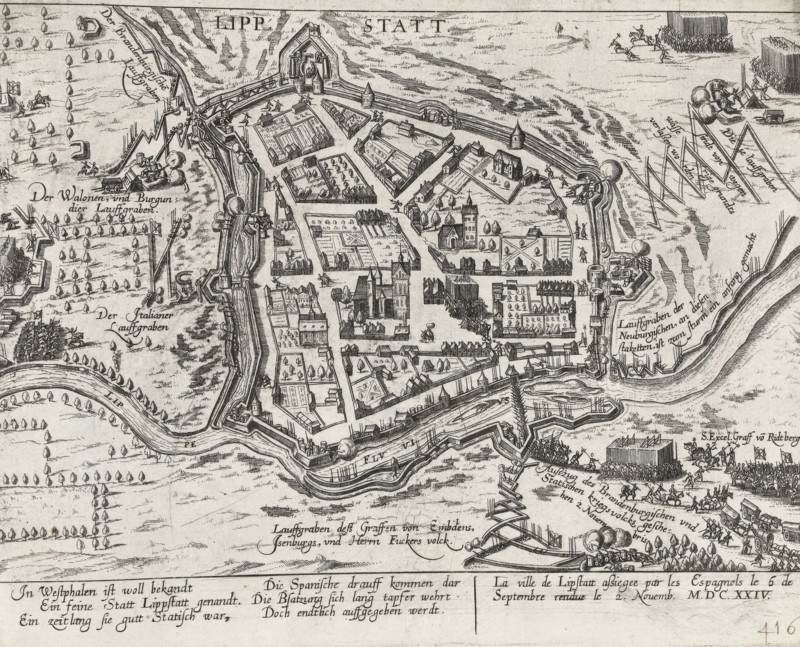 LIPP STATT
Der Brandenburgische
Lauffgrab
Der Walonen, vnd Burgun:
dier Lauffgraben.
Der Italianer
Lauffgraben
Lauffgraben der
Neuburgischen, an diesen
staketten, ist zum sturm ein anfang gemacht
LIP
PE
FLV VI
S. Excel. Graff vō Ridtberg
Ausszug des Brandenburgischen vnd
Statischen kriegs volcks gesche:
hen 2 Nouem
Lauffgraben deß Graffen von Embdens,
Isenburgs, vnd Herrn Fuckers volck.
In Westphalen ist woll bekandt
Ein feine Statt Lippstatt genandt.
Ein zeitlang sie gutt Statisch war,
Die Spanische drauff kommen dar
Die Bsatzung sich lang tapfer wehrt
Doch endtlich auffgegeben werdt.
La ville de Lipstatt aßiegee par les Espagnols le 6 de
Septembre rendue le 2. Novemb. M.D.C.XXIV.
416